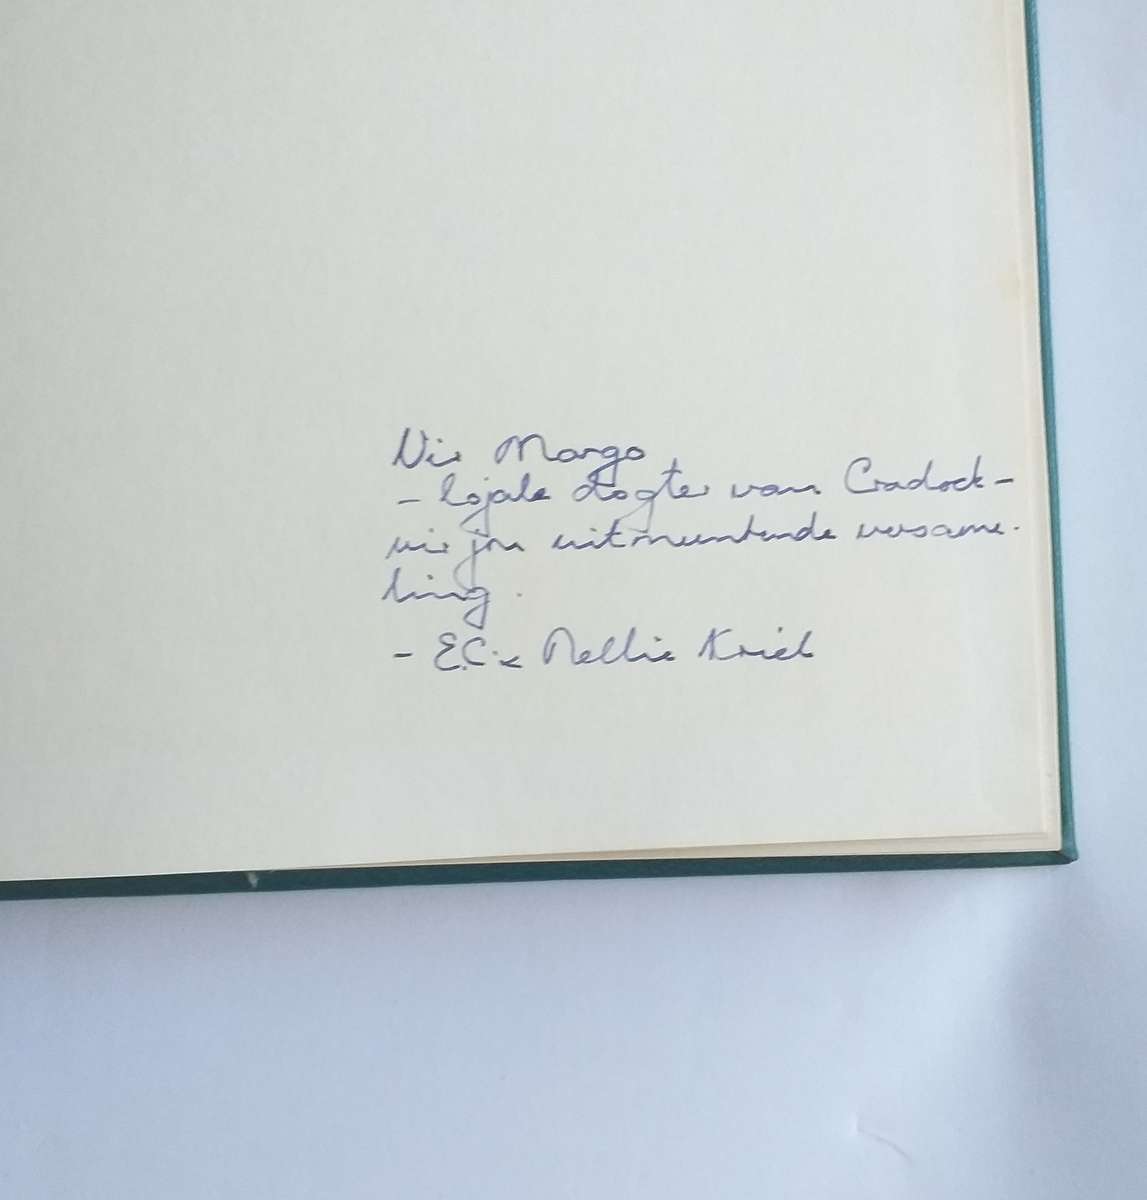 Vir Margo
- lojale dogter van Cradock -
vir jou uitmuntende versame-
ling.
- E.C. & Nellie Kriel